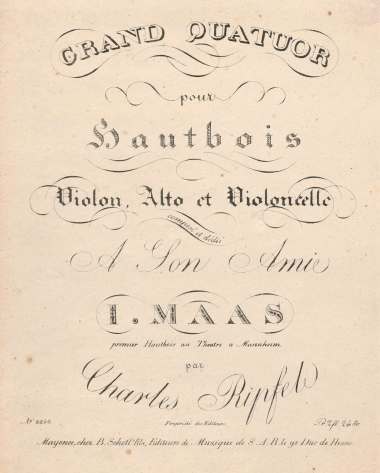 GRAND QUATUOR
pour
Hautbois
Violon, Alto et Violoncelle
composé et dédié
A Son Amie
I. MAAS
premier Hautbois au Theatre a Mannheim.
par
Charles Ripfel
Propriété des Editeurs
Mayence, chez B. Schott fils, Editeurs de Musique de S. A. R. le gr. Duc de Hesse.